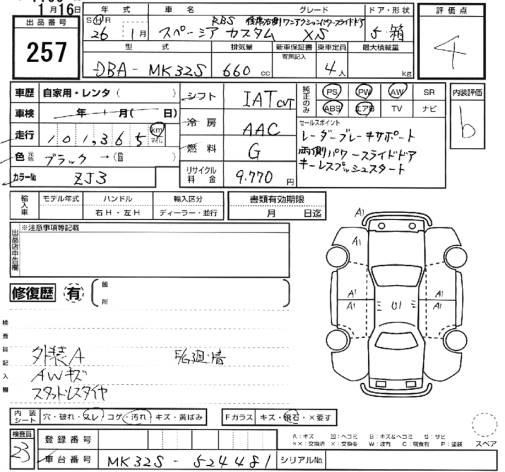 11月16日
出品番号
257
年式
S H R
26年1月
車名
スペーシア カスタム
グレード
RBS
XS
ドア・形状
5 箱
型式
DBA-MK32S
排気量
660 cc
新車保証書
有記載幻
乗車定員
4人
最大積載量
kg
評価点
4
車歴 自家用・レンタ( )
車検 年 月( 日)
走行 101,365 km マイル
色 元色 ブラック→(色 )
カラーNo. ZJ3
シフト IAT CVT
冷房 AAC
燃料 G
リサイクル料金 9.770円
純正のみ
PS PW AW SR
ABS エアB TV ナビ
セールスポイント
レーダーブレーキサポート
両側パワースライドドア
キーレスプッシュスタート
内装評価
b
輸入車
モデル年式
ハンドル
右H・左H
輸入区分
ディーラー・並行
書類有効期限
月 日迄
出品店申告欄
※注意事項等記載
修復歴 有
箇所
検査員記入欄
外装A
AWキズ
スタッドレスタイヤ
A1
A1
A1
A1
A1
U1
内装シート
穴・破れ・スレ コゲ・汚れ キズ・黄ばみ
Fガラス キズ・飛石・×要す
スペア
検査員
23
登録番号
車台番号 MK32S-524481
シリアルNo.